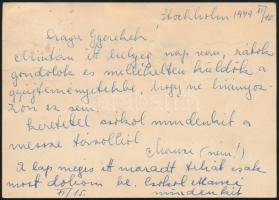 Stockholm 1949 XI/10
Drága Gyerekek!
Miután itt bélyeg nap van, rátok
gondolok és mellékelten küldök a
gyűjteményetekbe, hogy ne hiányoz-
zon ez sem.
Szeretettel csókol mindenkit a
messze távolból
Manci (néni!)
A lap mégis itt maradt tehát csak
most dobom be. Csókol Manci
XI/15. mindenkit